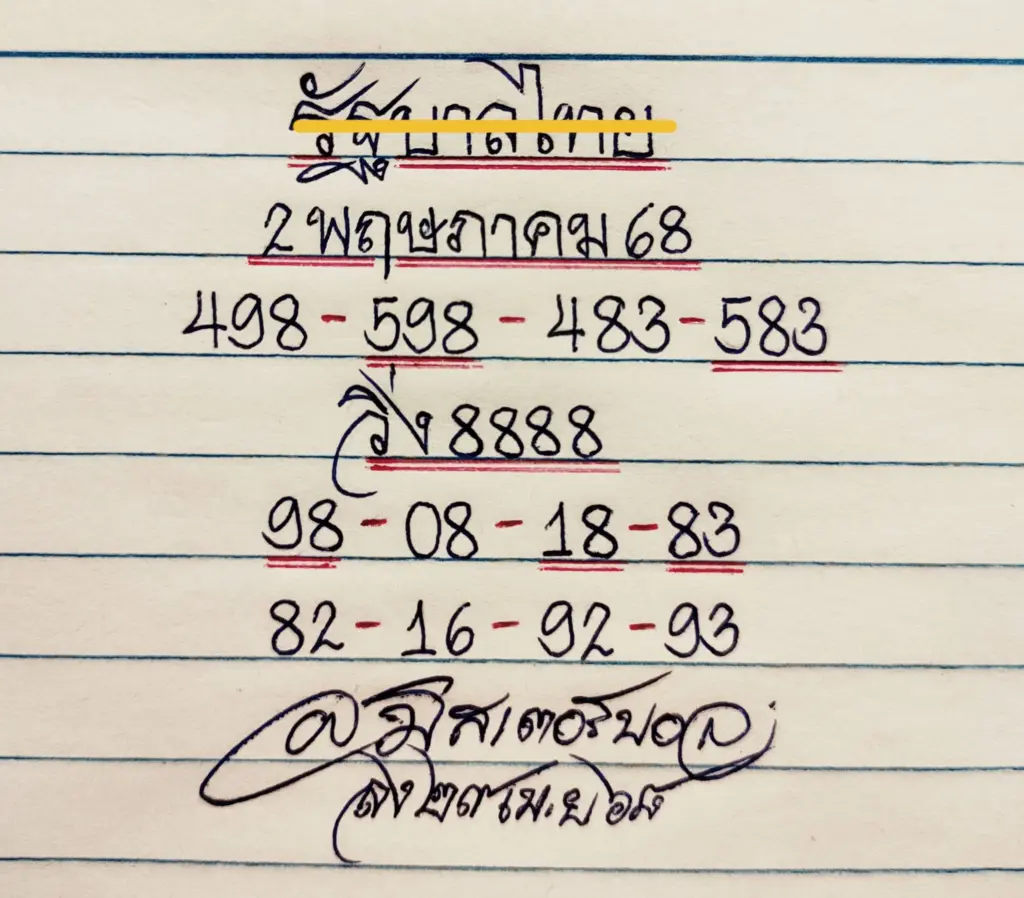 รัฐบาลไทย
2 พฤษภาคม 68
498 - 598 - 483 - 583
วิ่ง 8888
98 - 08 - 18 - 83
82 - 16 - 92 - 93
อ.มิสเตอร์บอล